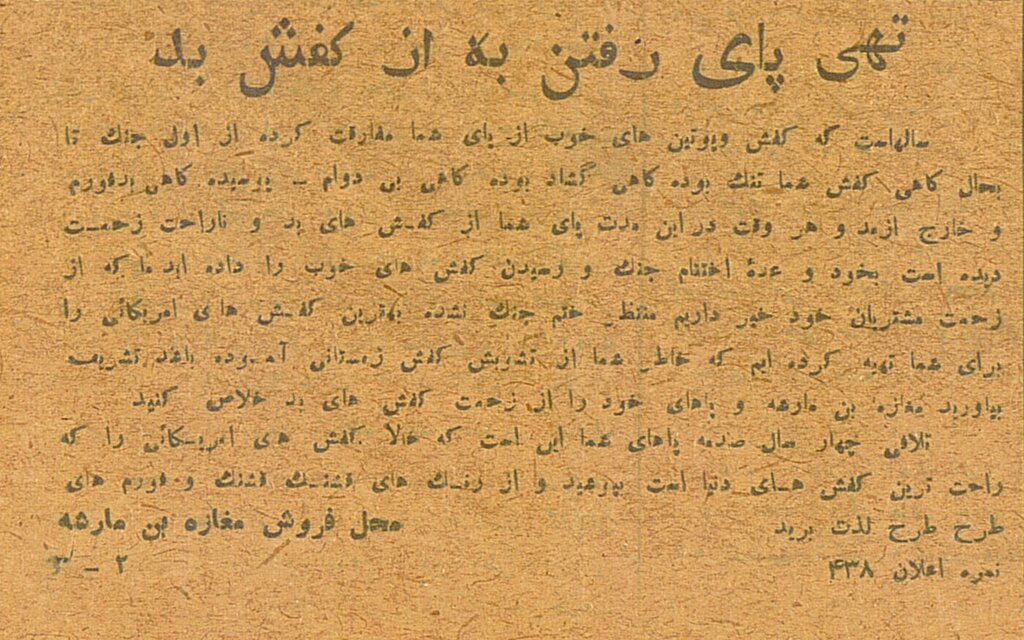 تهی پای رفتن به از کفش بد
سالهاست که کفش وپوتین های خوب از پای شما مفارقت کرده از اول جنك تا
بحال کاهی کفش شما تنك بوده کاهی گشاد بوده کاهی بی دوام ــ پوسیده کاهی بدفورم
و خارج ازمد و هر وقت در این مدت پای شما از کفش های بد و ناراحت زحمت
دیده است بخود و عدهٔ اختتام جنك و رسیدن کفش های خوب را داده اید ما که از
زحمت مشتریان خود خبر داریم منتظر ختم جنك نشده بهترین کفش های امریکائی را
برای شما تهیه کرده ایم که خاطر شما از تشویش کفش زمستانی آسوده باشد تشریف
بیاورید مغازه بن مارشه و پاهای خود را از زحمت کفش های بد خلاص کنید
تلافی چهار سال صدمه پاهای شما این است که حالا کفش های امریکائی را که
راحت ترین کفش های دنیا است بپوشید و از رنك های قشنك قشنك و فورم های
طرح طرح لذت برید
محل فروش مغازه بن مارشه
نمره اعلان ۴۳۸
۲ ــ ۳